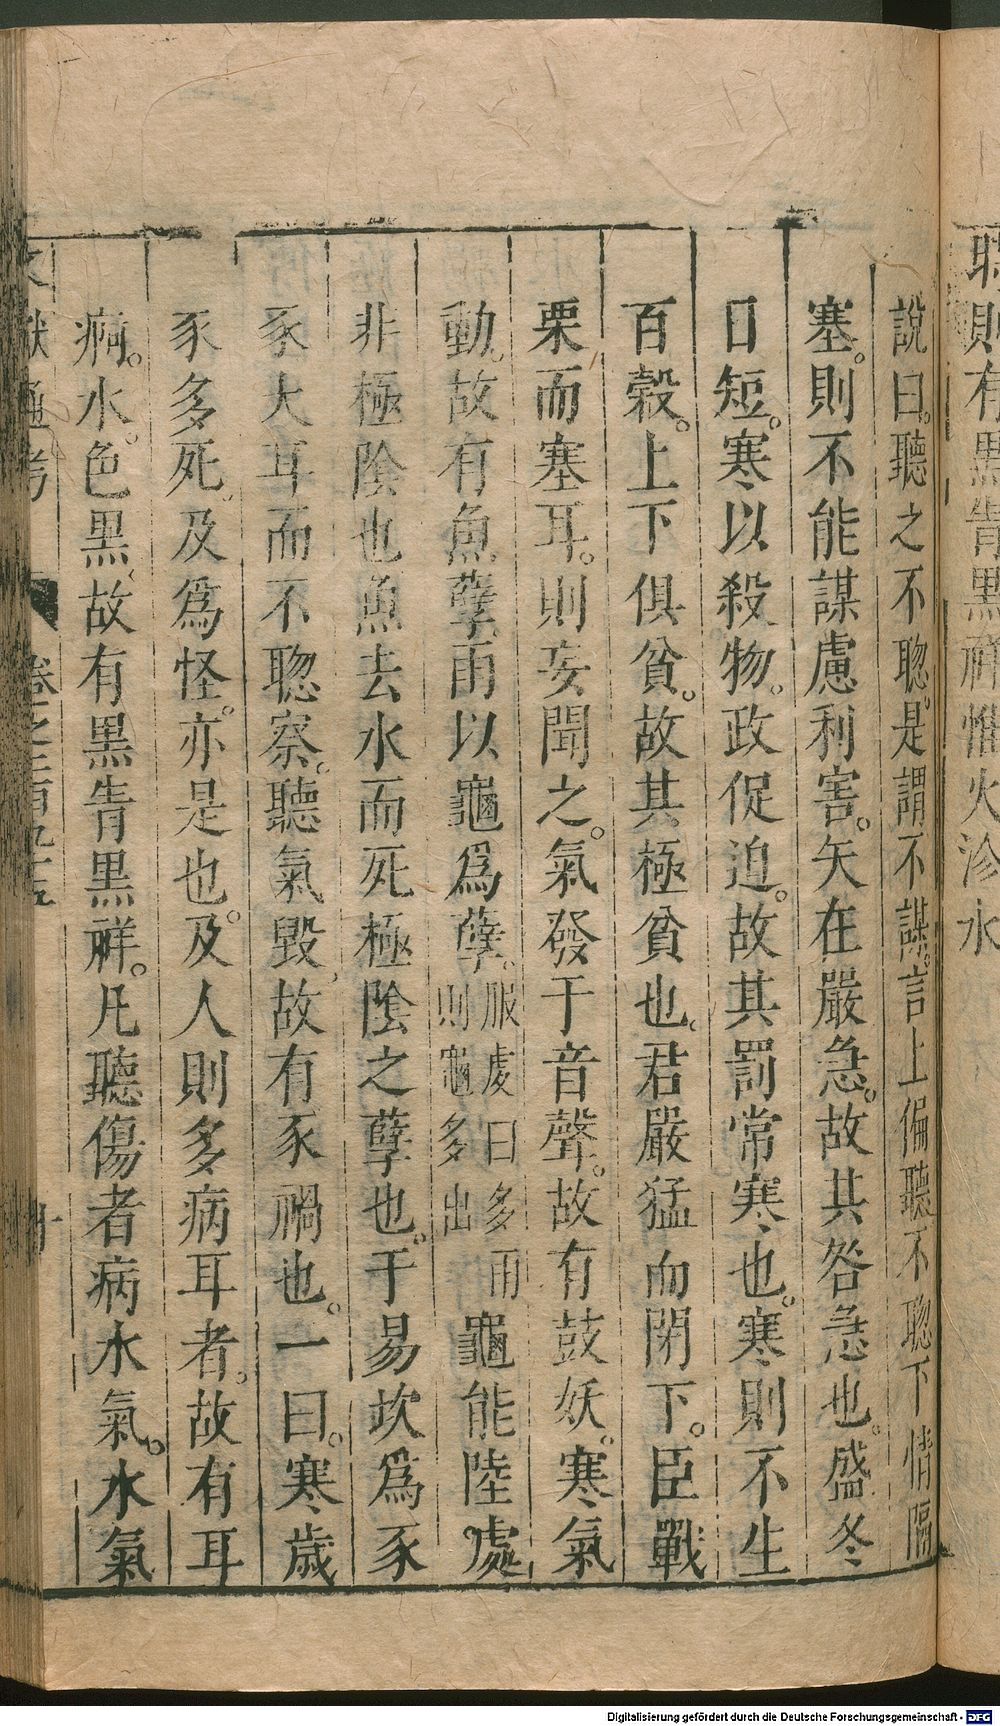 聽則有黒眚黒祥惟火沴水
說曰。聽之不聦。是謂不謀。言上偏聽不聦下情隔
塞。則不能謀慮利害。矢在嚴急。故其咎急也。盛冬
日短。寒以殺物。政促迫。故其罰常寒也。寒則不生
百穀。上下俱貧。故其極貧也。君嚴猛而閉下。臣戰
栗而塞耳。則妄聞之。氣發于音聲。故有鼓妖。寒氣
動。故有魚孽。雨以龜爲孽。服虔曰多雨則龜多出龜能陸處
非極陰也魚去水而死極陰之孽也。于易坎爲豕
豕大耳而不聦察。聽氣毀。故有豕禍也。一曰。寒歲
豕多死。及爲怪。亦是也。及人則多病耳者。故有耳
痾。水色黒。故有黒眚黒祥。凡聽傷者病水氣。水氣
文獻通考 卷之三百九十五
Digitalisierung gefördert durch die Deutsche Forschungsgemeinschaft - DFG